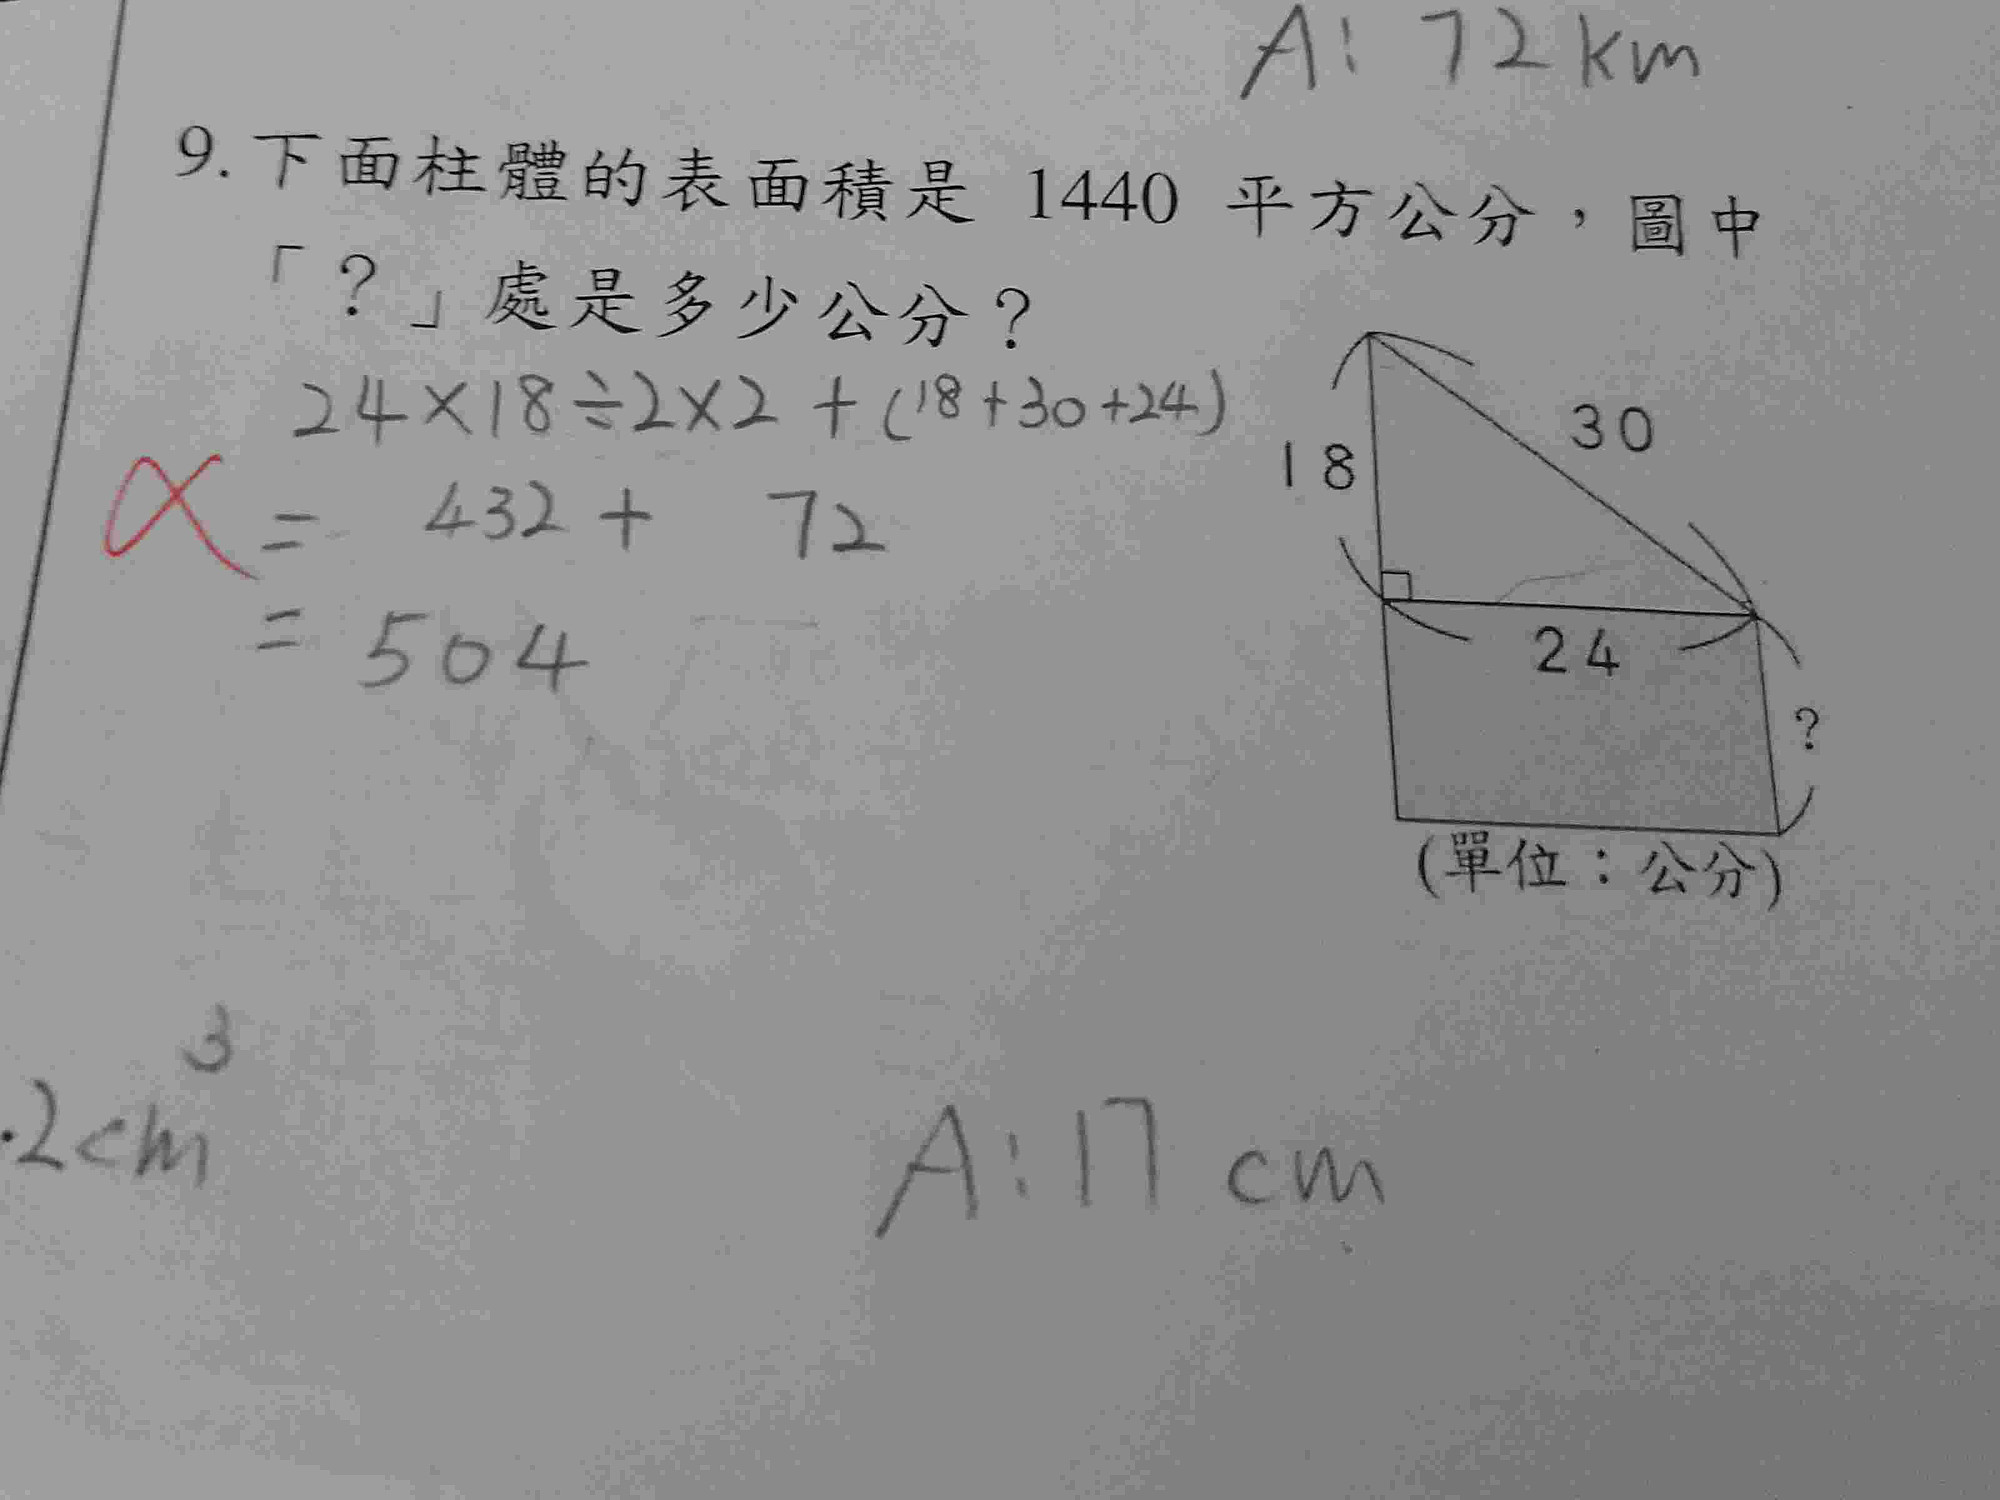 A: 72 km
9. 下面柱體的表面積是 1440 平方公分，圖中
「？」處是多少公分？
24×18÷2×2+(18+30+24)
= 432 + 72
= 504
18
30
24
?
(單位：公分)
3
.2cm
A: 17 cm